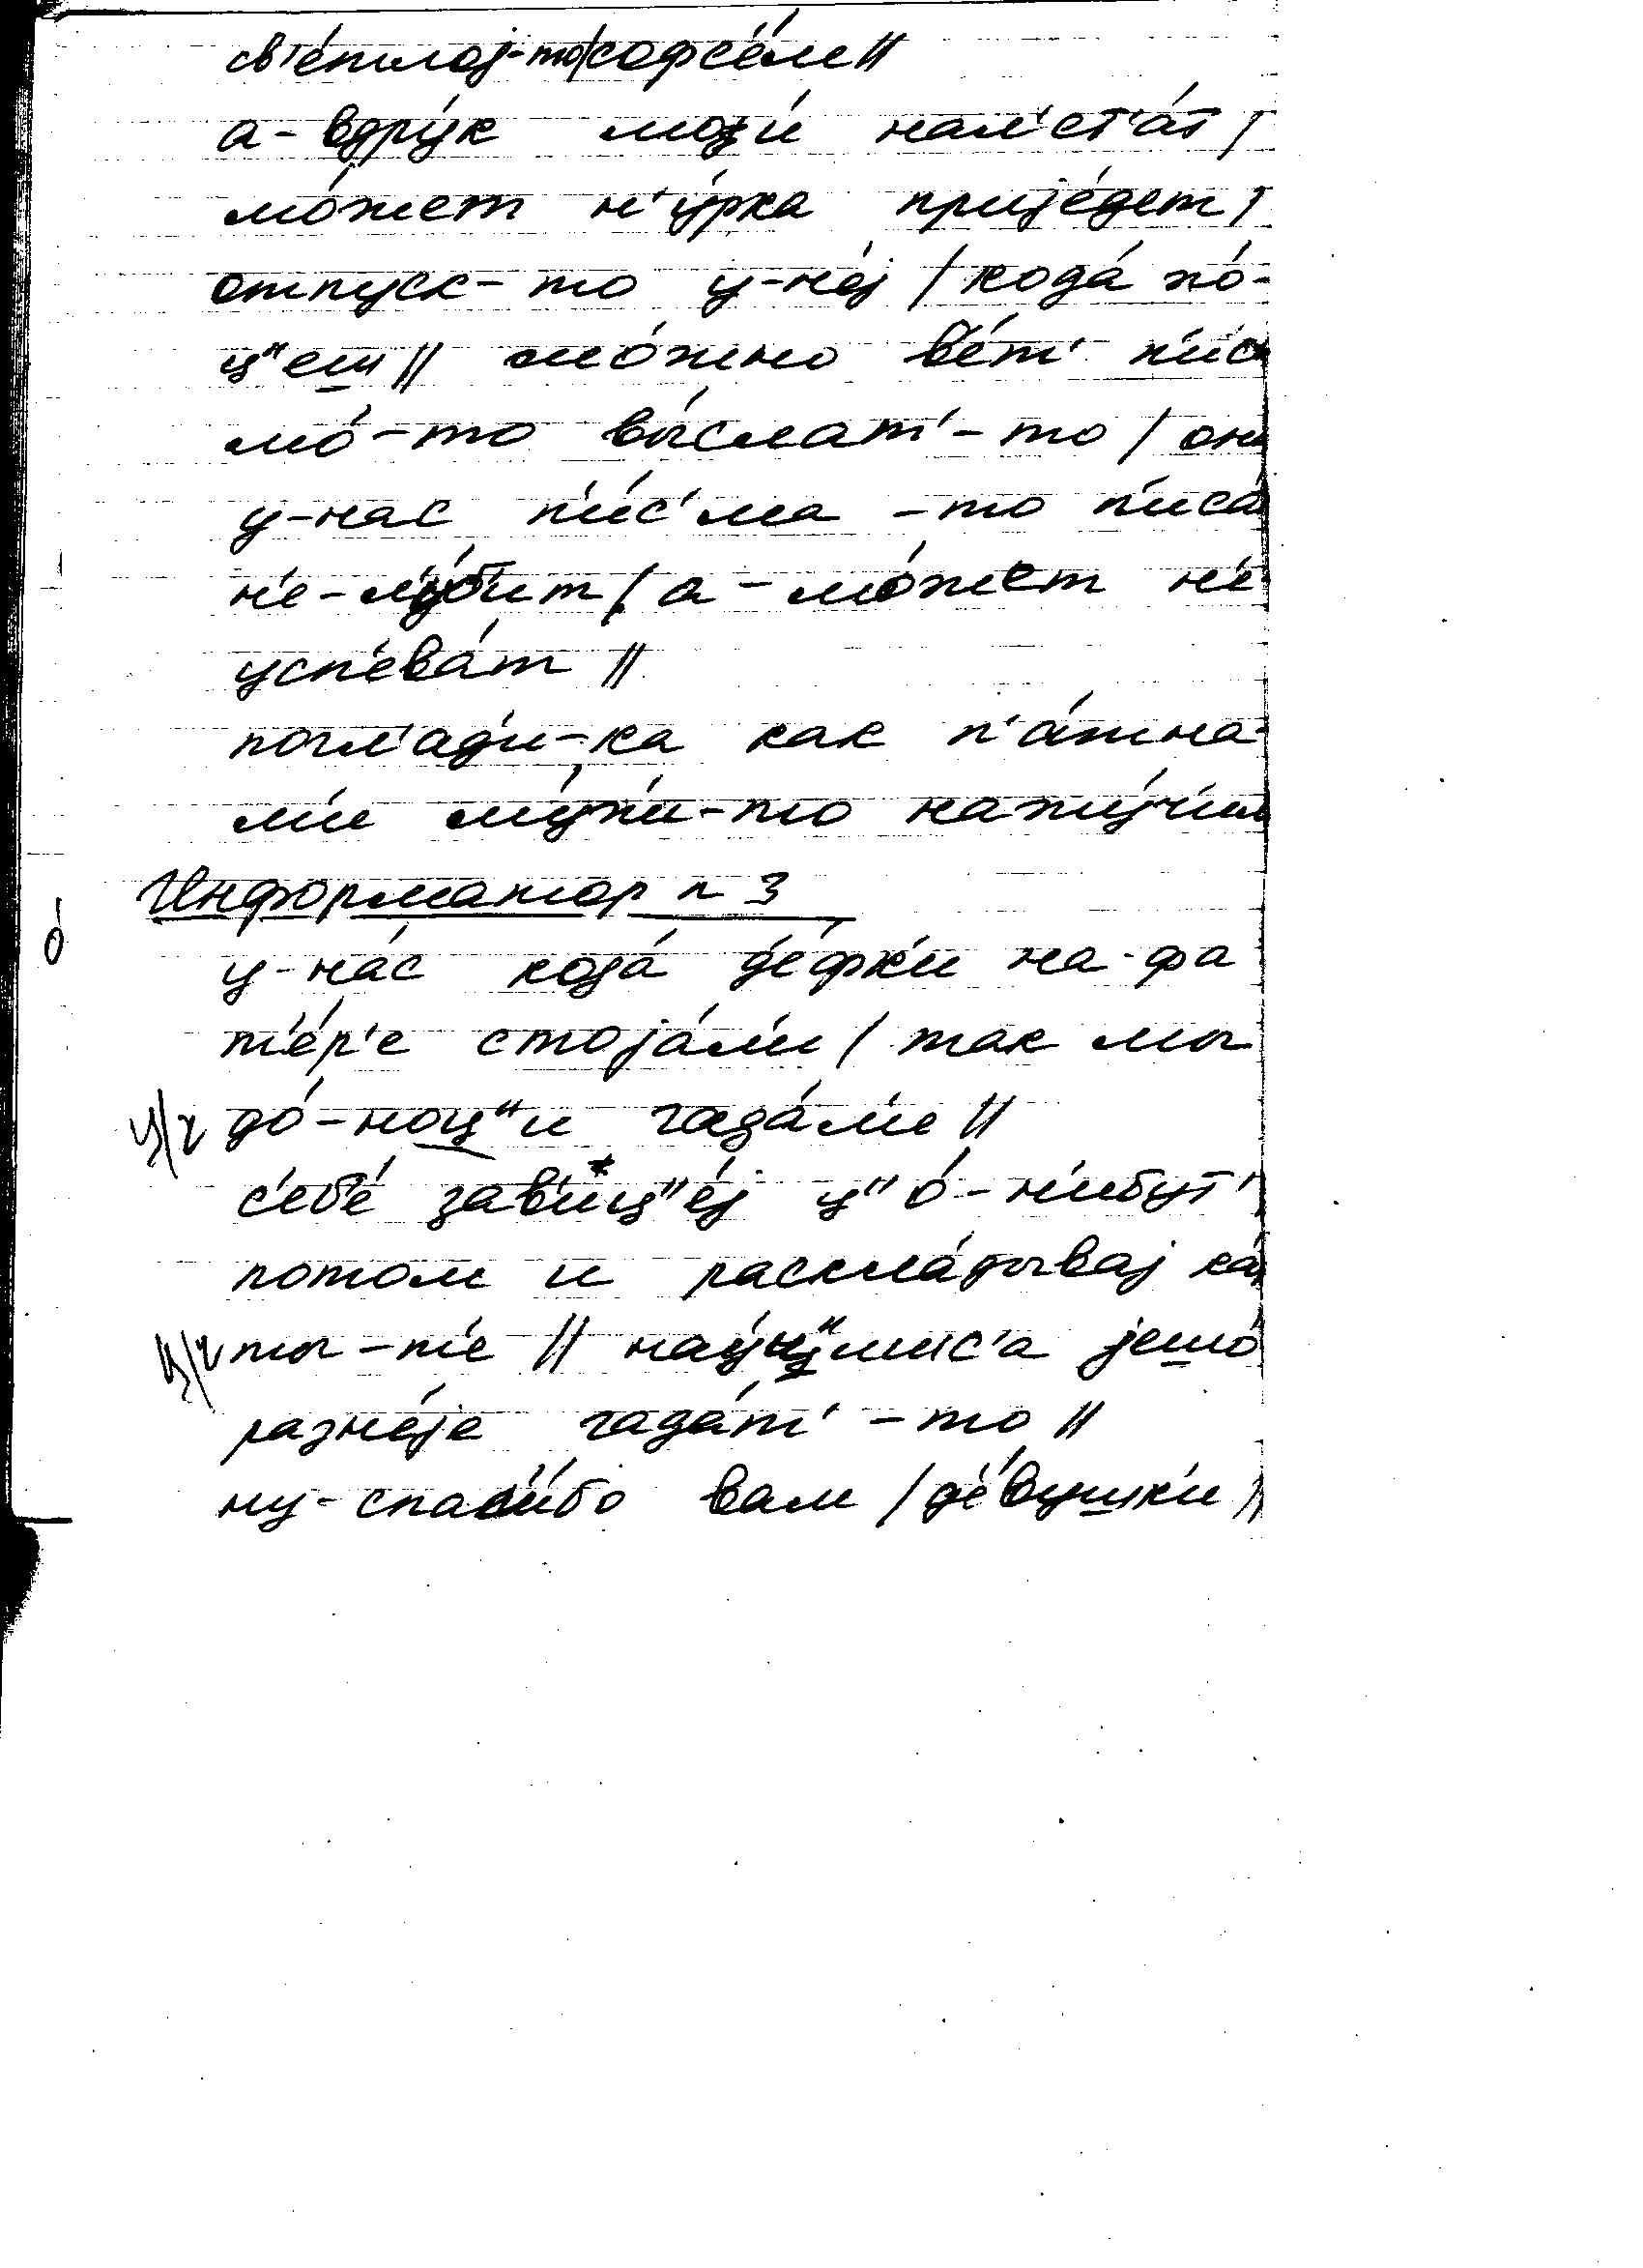 св'е́тлој-то/софс'е́м //
а-вдру́к моз'и́ нал'ет'а́т /
мо́жет н'у́рка пријéдет /
отпуск-то у-не́ј / кода́ хо́-
ц"еш // мо́жно в'е́т' п'ис
мо́-то вы́слат'-то / он
у-нас п'и́с'ма -то п'иса́
н'е-л'у́б'ит / а-мо́жет н'е
усп'ева́т //
погл'ад'и́-ка как п'а́тна-
м'и му́х'и-то
Информатор n 3
у-на́с кода́ д'е́фк'и на-фа
т'е́р'е стоја́л'и / так мы
ц/ч до́-ноц"и гада́л'и //
с'еб'е́ зав'иц"е́ј ц"о́-н'ибут'
потом и раскла́дывај ка́
ц/ч ты-п'е // науц"илис'а јешо́
разн'е́је гада́т' -то //
ну-спас'и́бо вам / д'е́вушк'и //
о́